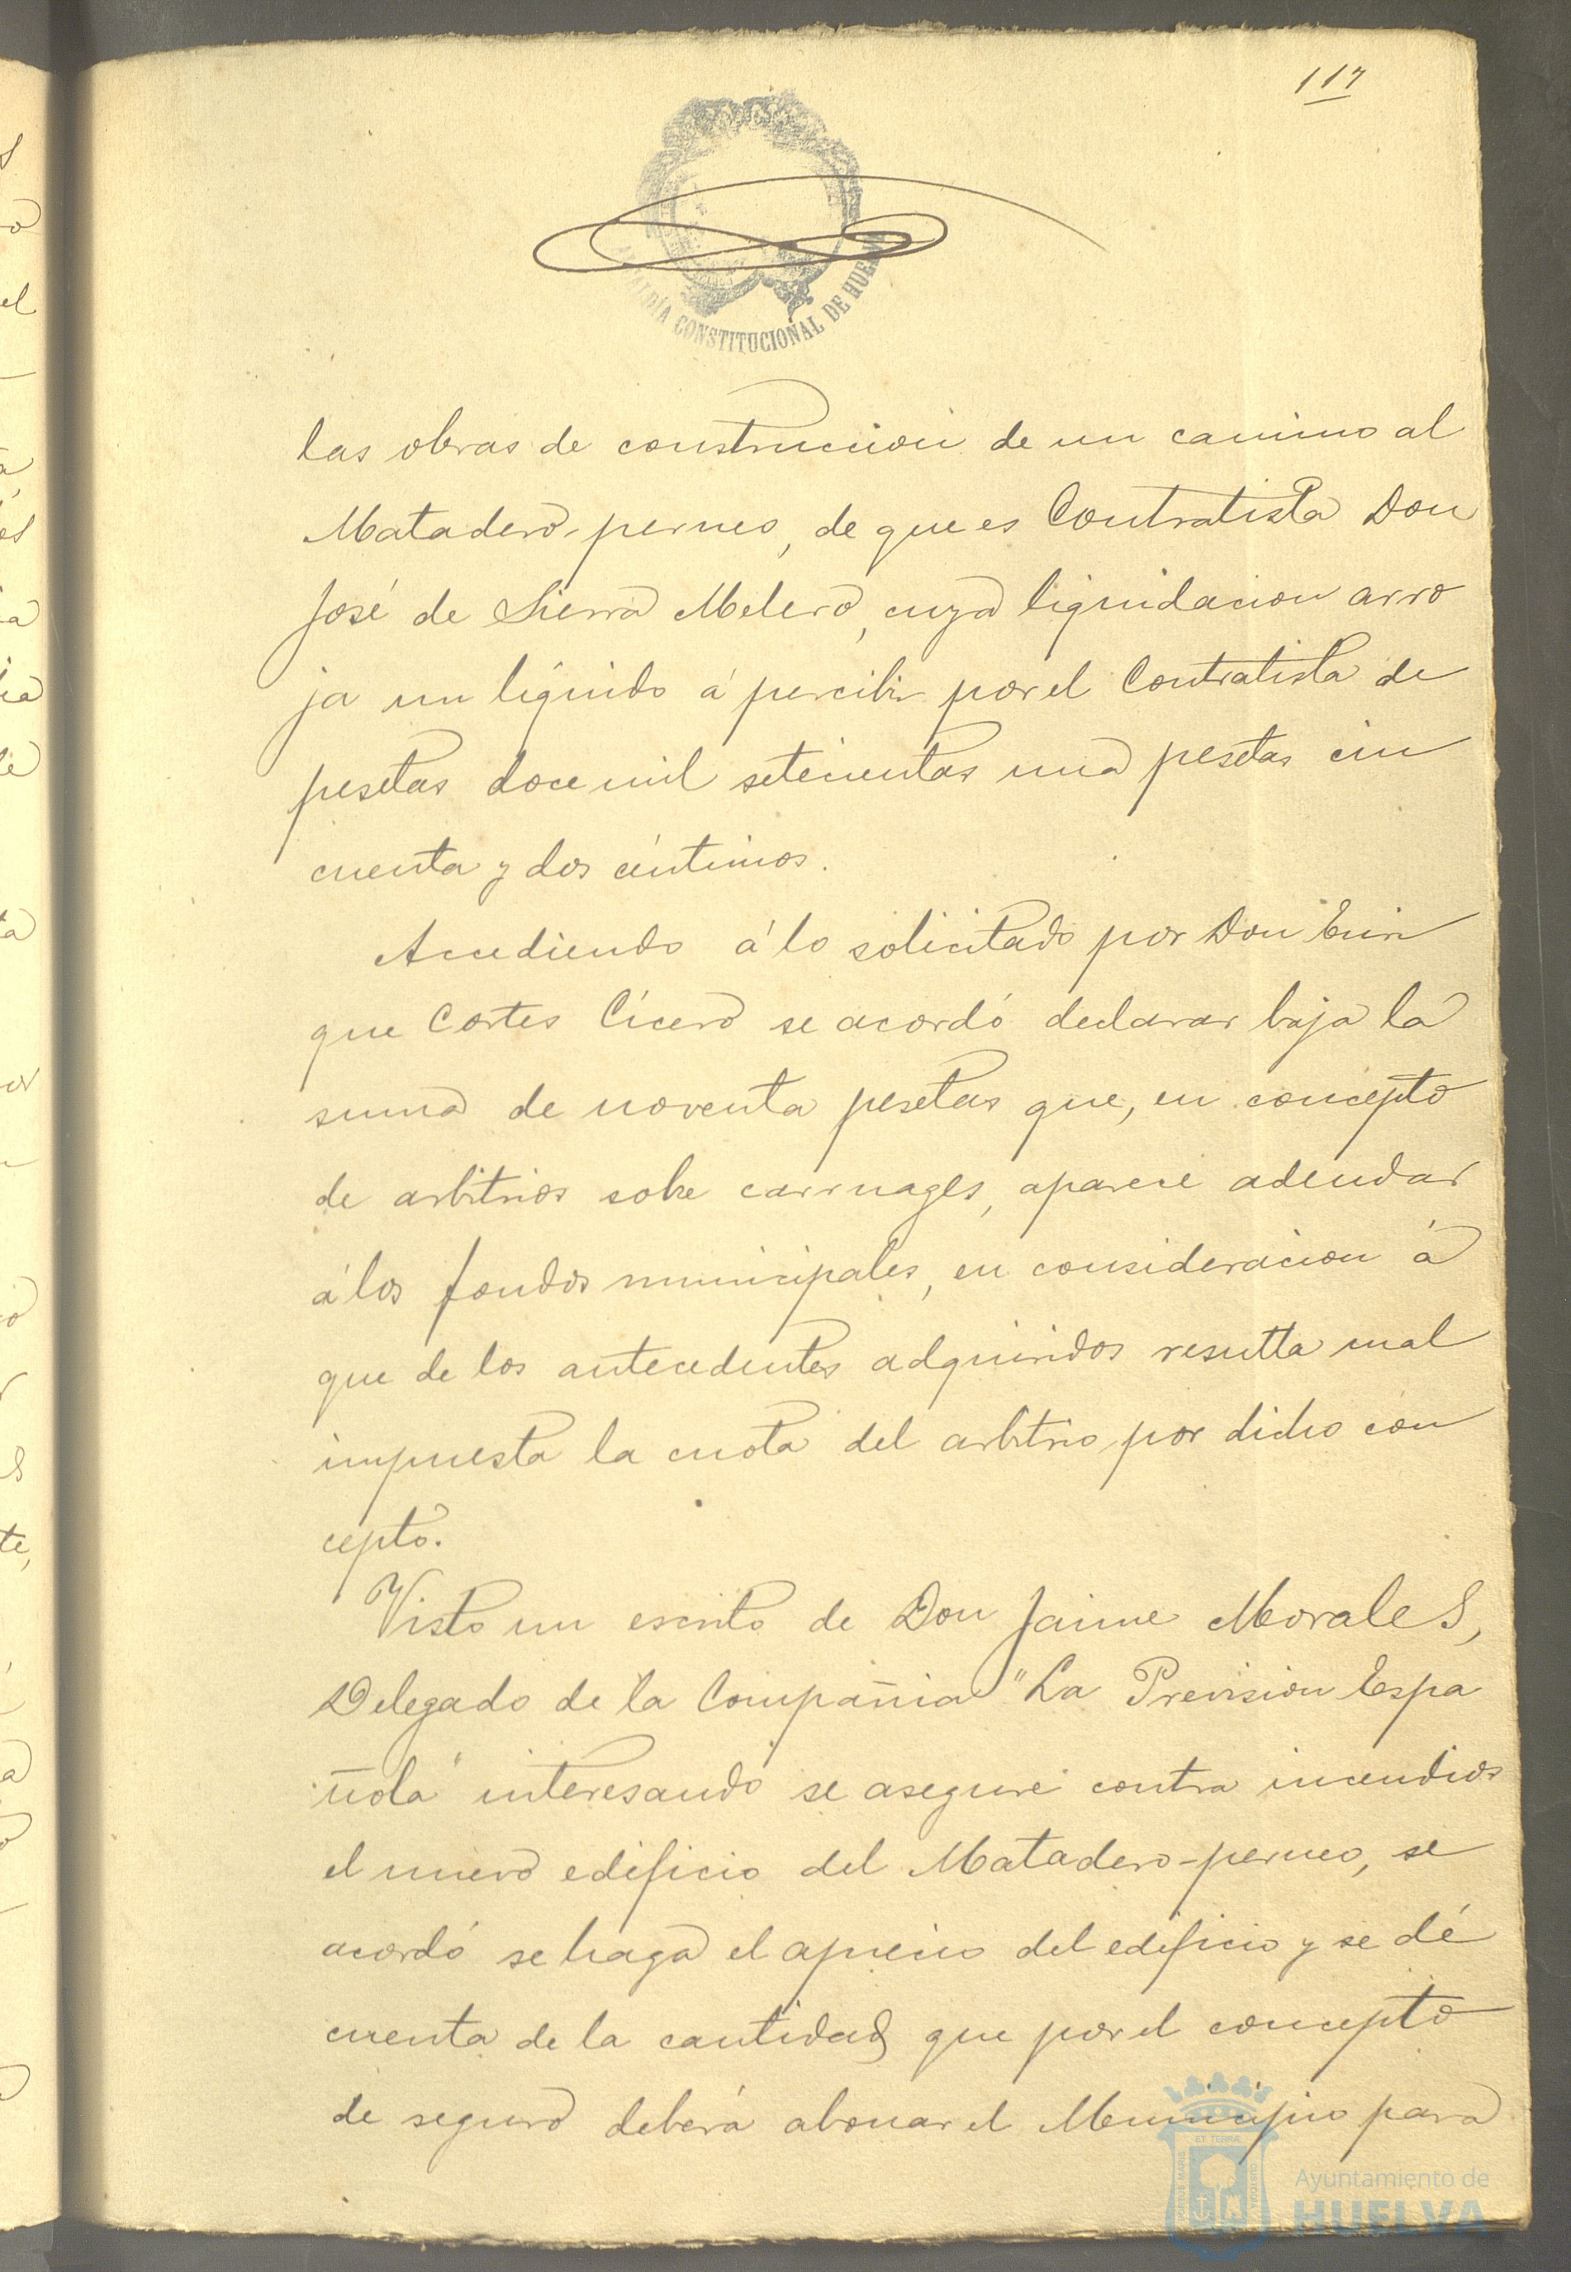 117
ALDÍA CONSTITUCIONAL DE HUELVA
las obras de construccion de un camino al
Matadero-perneo, de que es Contratista Don
José de Sierra Melero, cuya liquidacion arro
ja un líquido á percibir por el Contratista de
pesetas doce mil setecientas una pesetas cin
cuenta y dos céntimos.
Accediendo á lo solicitado por Don Enri
que Cortes Cícero se acordó declarar baja la
suma de noventa pesetas que, en concepto
de arbitrios sobre carruages, aparece adeudar
á los fondos municipales, en consideracion á
que de los antecedentes adquiridos resulta mal
impuesta la cuota del arbitrio por dicho con
cepto.
Visto un escrito de Don Jaime Morales,
Delegado de la Compañia "La Prevision Espa
ñola" interesando se asegure contra incendios
el nuevo edificio del Matadero-perneo, se
acordó se haga el aprecio del edificio y se dé
cuenta de la cantidad que por el concepto
de seguro deberá abonar el Municipio para
Ayuntamiento de
HUELVA